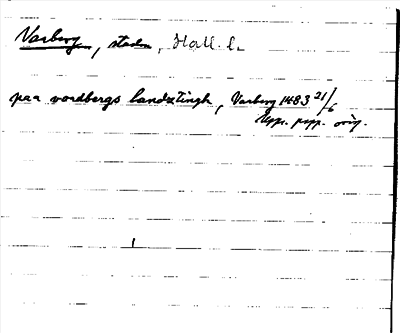 Varberg, staden, Hall. l.
paa wordbergs landztingh, Varberg 1483 21/6
papp. orig.